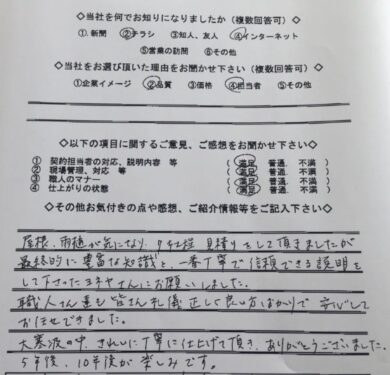 ◇当社を何でお知りになりましたか（複数回答可）◇
①.新聞 ②チラシ ③知人、友人 ④インターネット
⑤営業の訪問 ⑥その他
◇当社をお選び頂いた理由をお聞かせ下さい（複数回答可）◇
①企業イメージ ②品質 ③価格 ④担当者 ⑤その他
◇以下の項目に関するご意見、ご感想をお聞かせ下さい◇
① 契約担当者の対応、説明内容 等 （ 満足 普通. 不満 ）
② 現場管理、対応 等 （ 満足 普通. 不満 ）
③ 職人のマナー （ 満足 普通. 不満 ）
④ 仕上がりの状態 （ 満足 普通. 不満 ）
◇その他お気付きの点や感想、ご紹介情報等をご記入下さい◇
屋根、雨樋が気になり、 見積りをして頂きましたが
最終的に豊富な知識と、一番丁寧で信頼できる説明を
して下さったヨネヤさんにお願いしました。
職人さん達も皆さん礼儀正しく良い方ばかりで安心して
お任せできました。
大寒波の中、きれいに丁寧に仕上げて頂き、ありがとうございました。
5年後、10年後が楽しみです。